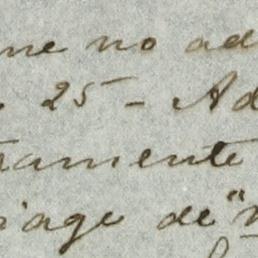 me no ad
25 - Ad
ramente
iage de "